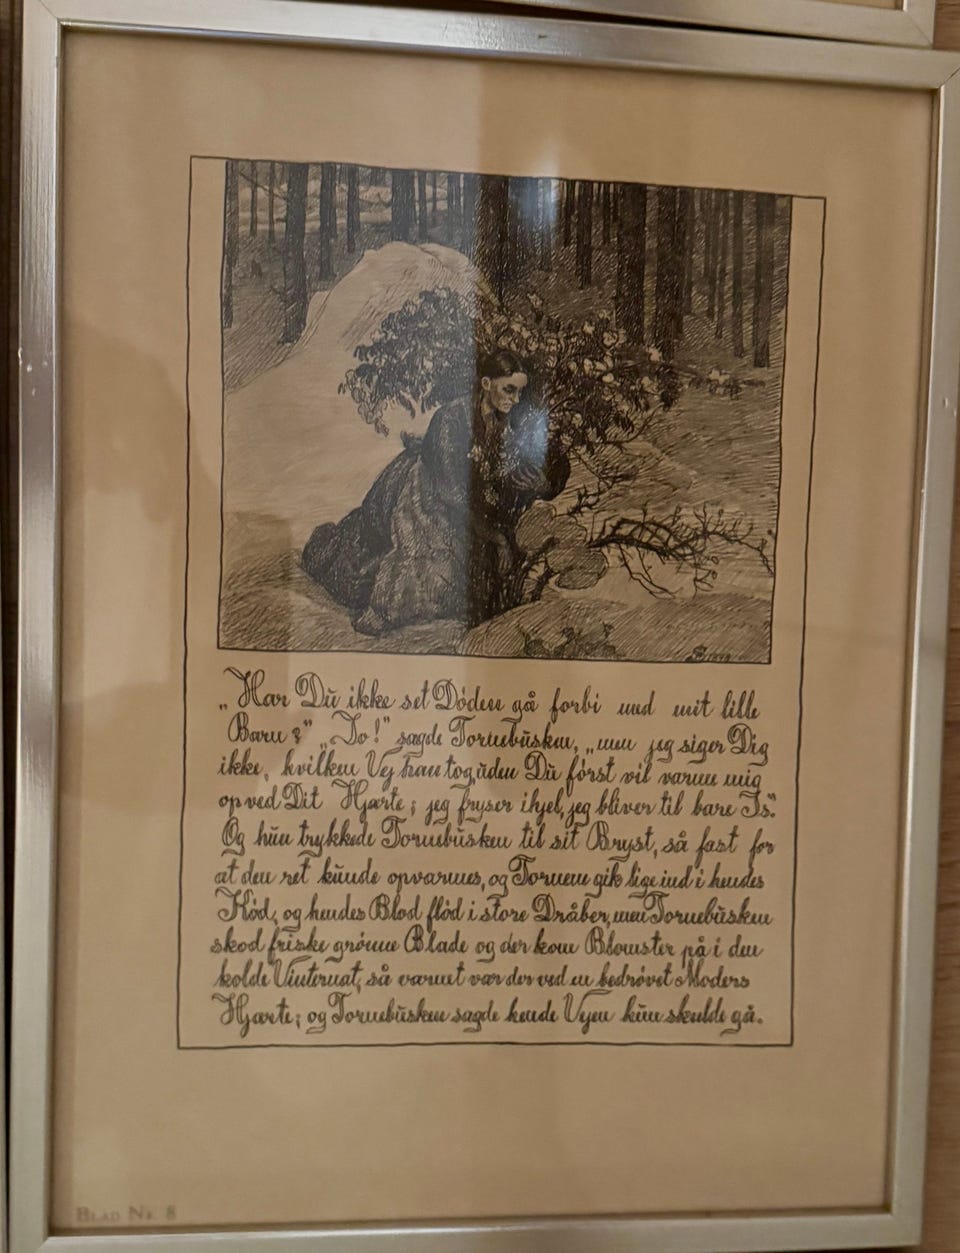 „Har Du ikke set Döden gå forbi med mit lille
Barn?” „Jo!” sagde Tornebusken, „men jeg siger Dig
ikke, hvilken Vej han tog, uden Du först vil varme mig
op ved Dit Hjærte; jeg fryser ihjel, jeg bliver til bare Is”.
Og hun trykkede Tornebusken til sit Bryst, så fast for
at den ret kunde opvarmes, og Tornene gik lige ind i hendes
Kød, og hendes Blod flöd i store Dråber, men Tornebusken
skød friske grönne Blade og der kom Blomster på i den
kolde Vinternat, så varmt var der ved en bedrövet Moders
Hjærte; og Tornebusken sagde hende Vejen hun skulde gå.
BLAD NR. 8